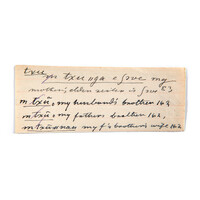 txuu
txuuga e give my
mother's older sister is give 83
m txū, my husband's brother 162
m txū, my father's brother 162
m txūanay my f's brother's wife 162